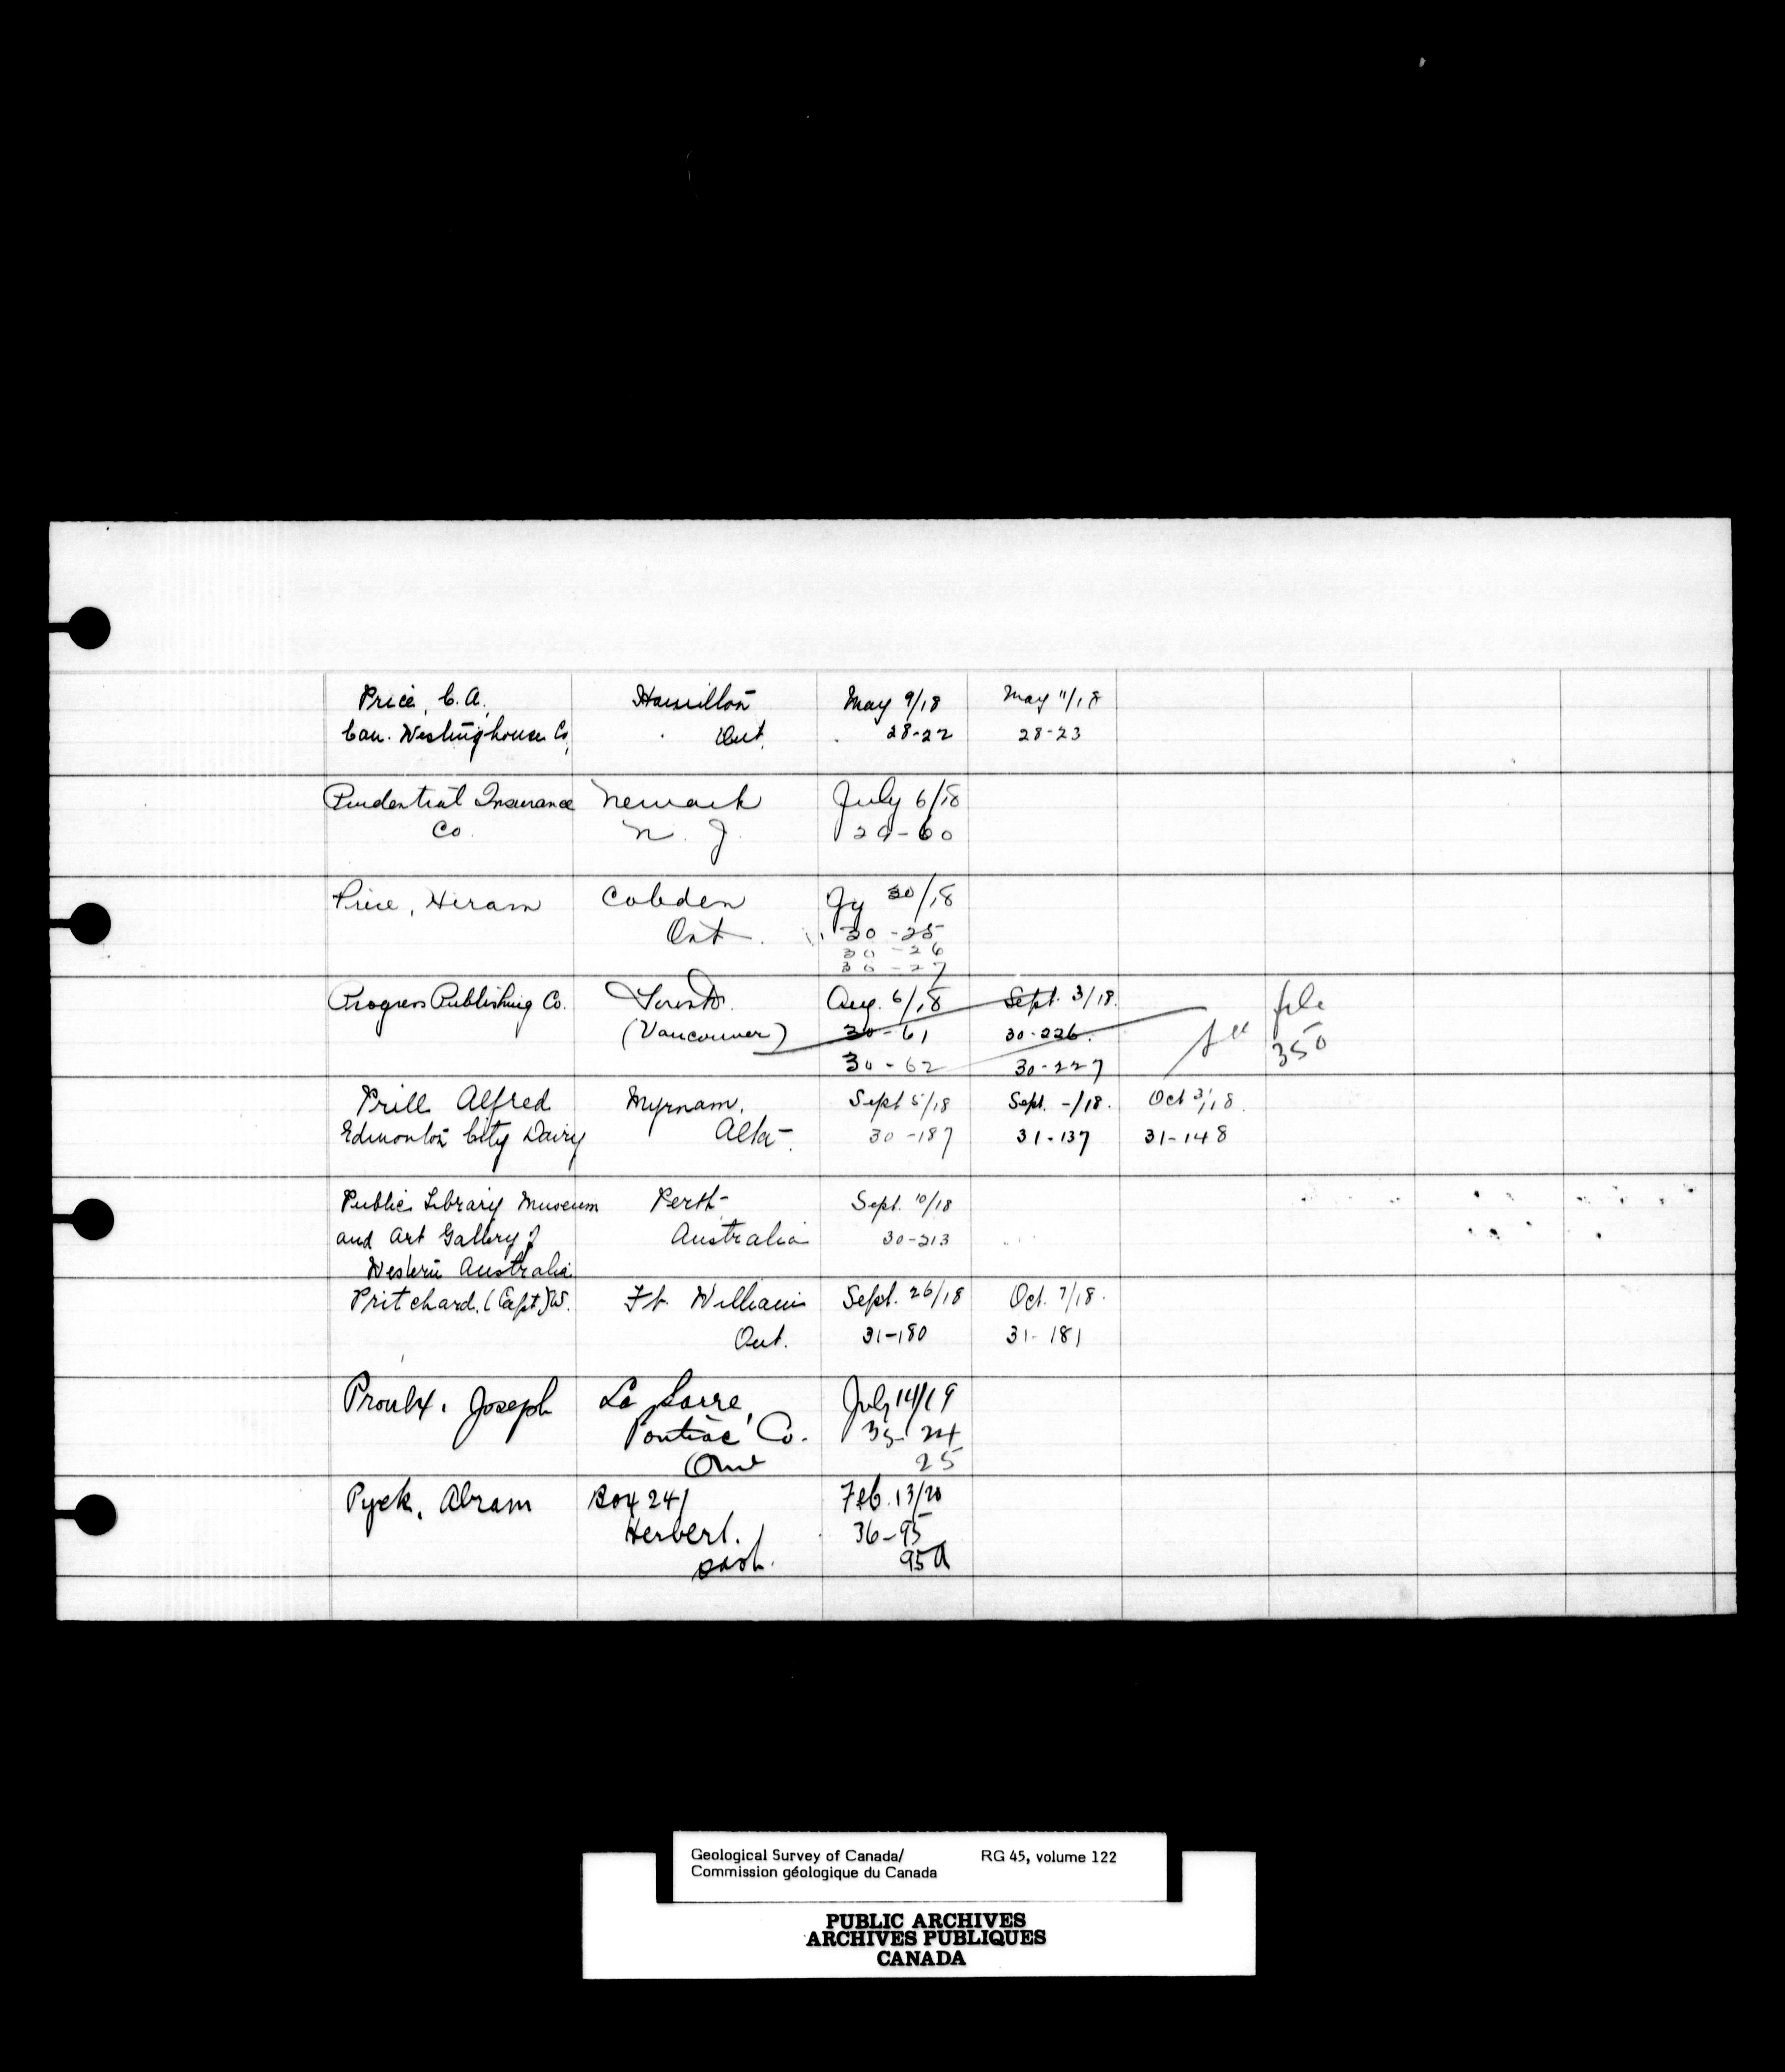 Price, C.A., Hamilton May 9/18 May 11/18
Can. Westinghouse Co, Ont. 28-22 28-23
Prudential Insurance Newark July 6/18
Co. N. J. 29-60
Price, Hiram Cobden Jy 30/18
Ont. 30-25
30-26
30-27
Progress Publishing Co. Toronto. Aug. 6/18 Sept. 3/18. file
(Vancouver) 30-61 30-226. see 350
30-62 30-227
Prill Alfred Myrnam, Sept 5/18 Sept. -/18. Oct 3/18.
Edmonton City Dairy Alta. 30-187 31-137 31-148
Public Library Museum Perth- Sept. 10/18
and Art Gallery of Australia 30-213
Western Australia
Pritchard, (Capt) W. Ft. William Sept. 26/18 Oct. 7/18.
Ont. 31-180 31-181
Proulx, Joseph La Sarre, July 14/19
Pontiac Co. 35-24
Que 25
Pyck, Abram Box 241 Feb. 13/20
Herbert. 36-95
Sask. 95A
Geological Survey of Canada/ RG 45, volume 122
Commission géologique du Canada
PUBLIC ARCHIVES
ARCHIVES PUBLIQUES
CANADA